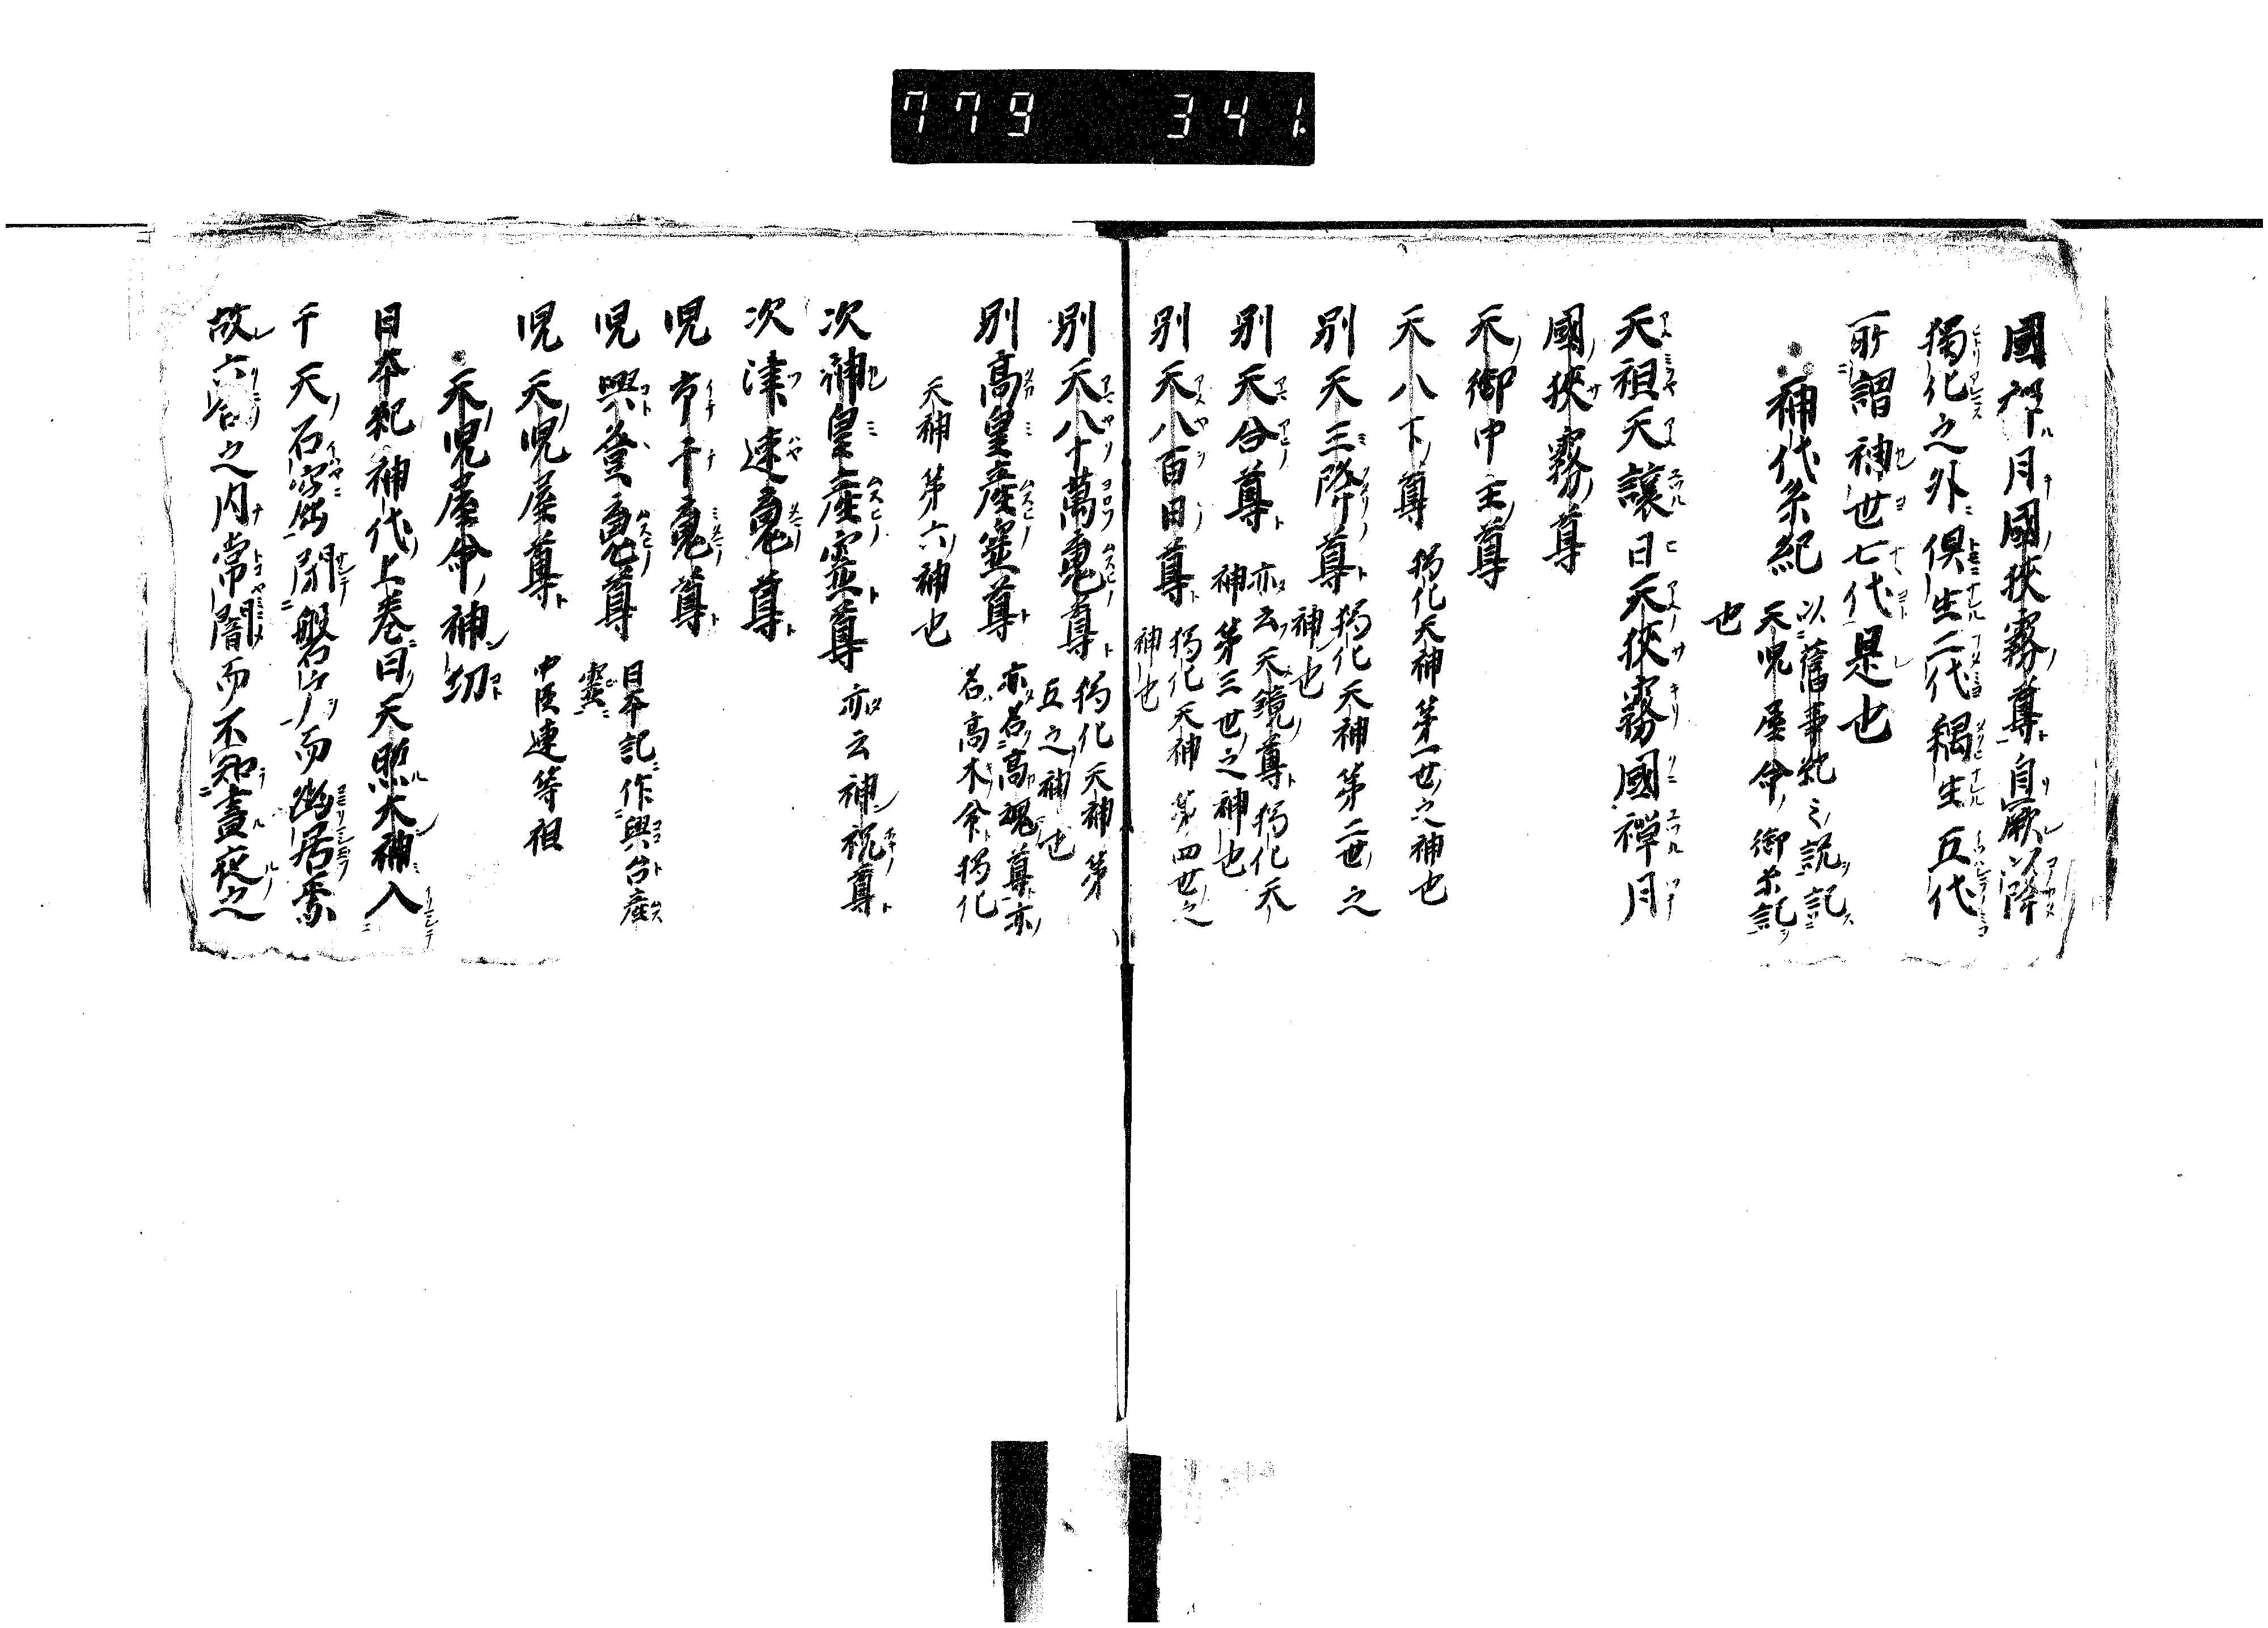 779 341
國禅月國狹霧尊自厥以降
獨化之外俱生二代耦生五代
所謂神世七代是也
神代系紀 以舊事紀之説記
天児屋命御系記
也
天祖天譲日天狹霧國禅月
國狹霧尊
天御中主尊
天八下尊 獨化天神第一世之神也
別天三降尊 獨化天神第二世之
神也
別天合尊 亦云天鏡尊獨化天
神第三世之神也
別天八百日尊 獨化天神第四世之
神也
別天八十萬䰠尊 獨化天神第
五之神也
別高皇產靈尊 亦名高魂尊亦
名高木命獨化
天神第六神也
次神皇產靈尊 亦云神祝尊
次津速䰠尊
児市千䰠尊
児興登䰠尊 日本記作興台產
靈
児天児屋尊 中臣連等祖
天児屋命神切
日本紀神代上巻曰天照大神入
于天石窟閉磐戸而幽居焉
故六合之内常闇而不知晝夜之